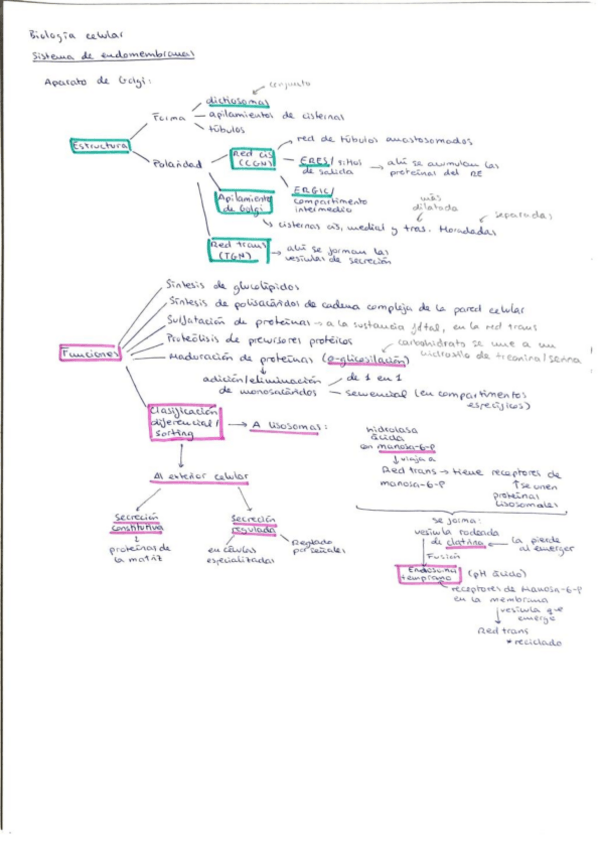 Biología celular
Sistema de endomembranas
Aparato de Golgi:
conjunto
dictiosomas
Forma
apilamientos de cisternas
túbulos
Estructura
Polaridad
Red cis
(CGN)
red de túbulos anastosomados
ERES/ sitios
de salida
ahí se acumulan las
proteínas del RE
ERGIC/
compartimento
intermedio
Apilamiento
de Golgi
más
dilatada
separadas
cisternas cis, medial y tras. Horadadas
Red trans
(TGN)
ahí se forman las
vesículas de secreción
Funciones
Síntesis de glucolípidos
Síntesis de polisacáridos de cadena compleja de la pared celular
Sulfatación de proteínas → a la sustancia fdtal, en la red trans
Proteólisis de precursores proteicos
Maduración de proteínas (o-glicosilación)
carbohidrato se une a un
hidroxilo de treonina/serina
adición/eliminación
de monosacáridos
de 1 en 1
secuencial (en compartimentos
específicos)
Clasificación
diferencial/
sorting
A lisosomas:
hidrolasa
ácida
con manosa-6-P
↓ viaja a
Red trans → tiene receptores de
manosa-6-P
↑ se unen
proteínas
lisosomales
Al exterior celular
Secreción
constitutiva
proteínas de
la matriz
Secreción
regulada
en células
especializadas
Reglado
por señales
se forma:
vesícula rodeada
de clatrina
la pierde
al emerger
Fusión
Endosoma
temprano
(pH ácido)
receptores de Manosa-6-P
en la membrana
vesícula que
emerge
Red trans
*reciclado